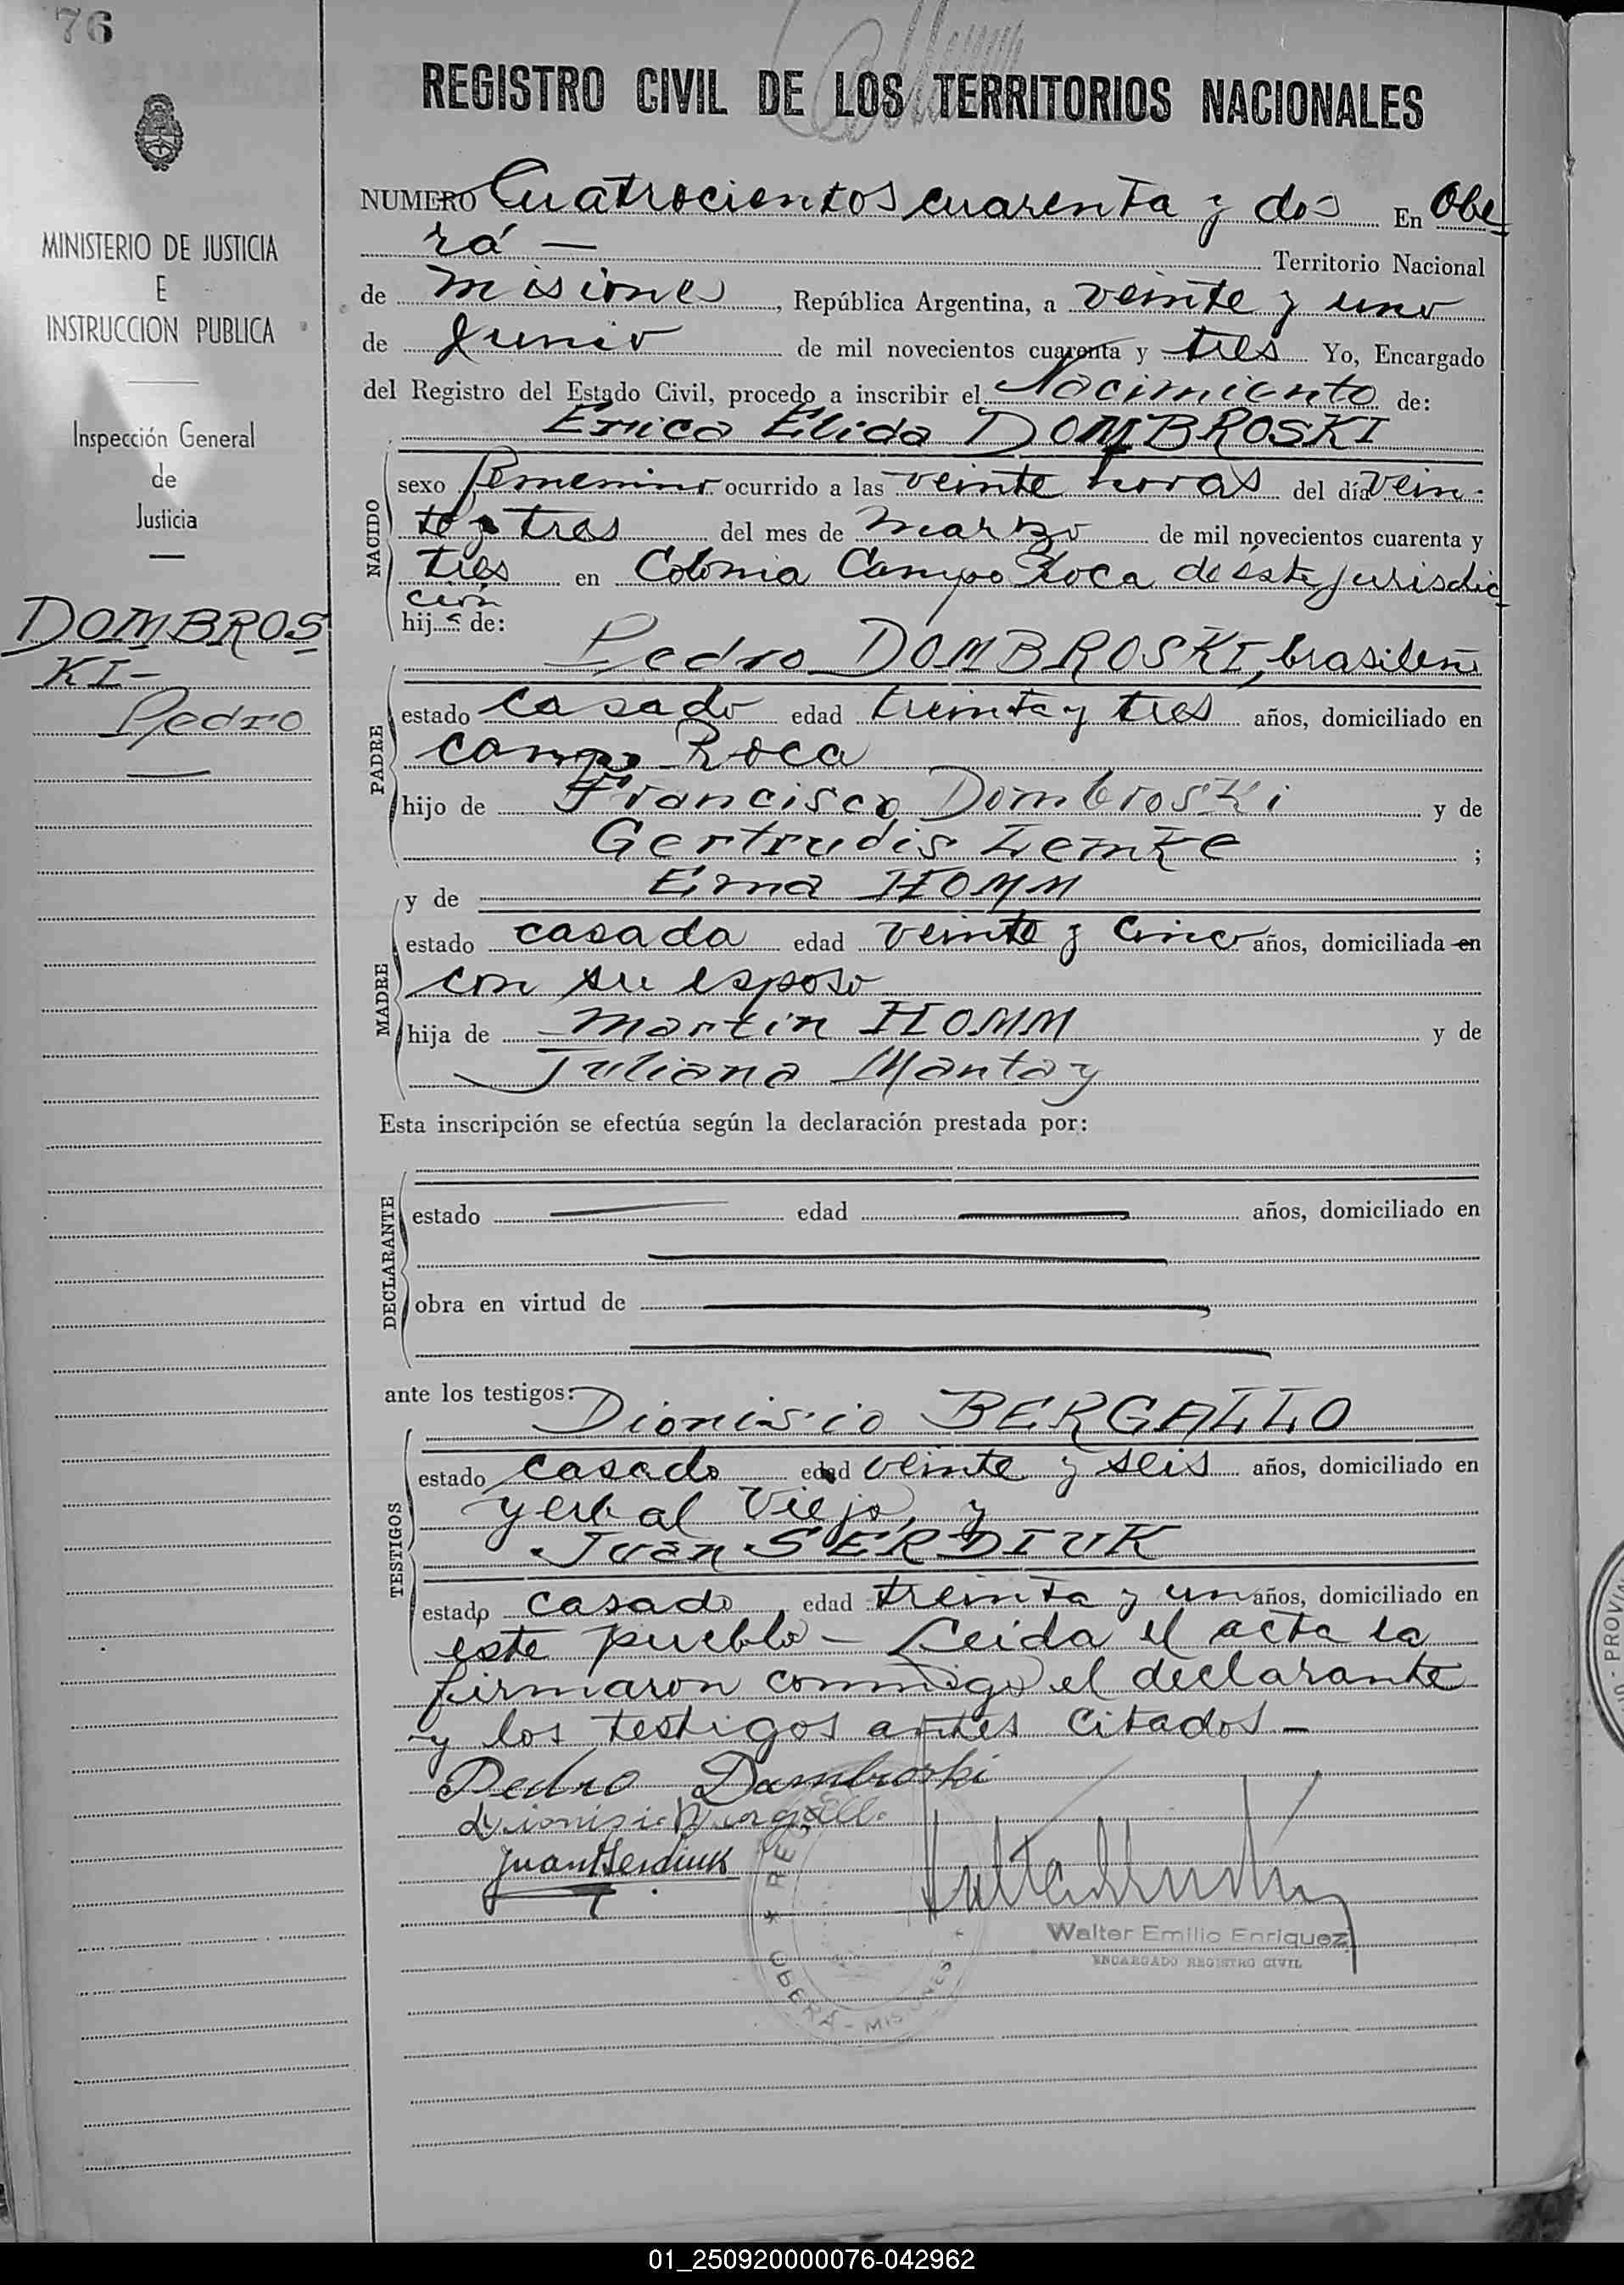 76
MINISTERIO DE JUSTICIA
E
INSTRUCCION PUBLICA
Inspección General
de
Justicia
DOMBROS
KI-
Pedro
REGISTRO CIVIL DE LOS TERRITORIOS NACIONALES
NUMERO Cuatrocientos cuarenta y dos En Obe
rá — Territorio Nacional
de Misiones, República Argentina, a veinte y uno
de Junio de mil novecientos cuarenta y tres Yo, Encargado
del Registro del Estado Civil, procedo a inscribir el Nacimiento de:
Erica Elida DOMBROSKI
NACIDO
sexo femenino ocurrido a las veinte horas del día vein-
te y tres del mes de marzo de mil novecientos cuarenta y
tres en Colonia Campo Roca de ésta jurisdic
ción
hij de:
Pedro DOMBROSKI, brasileño
PADRE
estado casado edad treinta y tres años, domiciliado en
campo Roca
hijo de Francisco Dombroski y de
Gertrudis Lemke ;
y de Erna HOMM
MADRE
estado casada edad veinte y cinco años, domiciliada en
con su esposo
hija de Martin HOMM y de
Juliana Mantay
Esta inscripción se efectúa según la declaración prestada por:
DECLARANTE
estado — edad — años, domiciliado en
obra en virtud de
ante los testigos:
Dionisio BERGALLO
TESTIGOS
estado casado edad veinte y seis años, domiciliado en
yerbal Viejo, y
Juan SERDIUK
estado casado, edad treinta y un años, domiciliado en
este pueblo - Leida el acta la
firmaron conmigo el declarante
y los testigos antes citados -
Pedro Dambroski
Dionisio Bergallo
Juan Serdiuk
Walter Emilio Enriquez
ENCARGADO REGISTRO CIVIL
OBERÁ - MISIONES
PROVIN
01_250920000076-042962